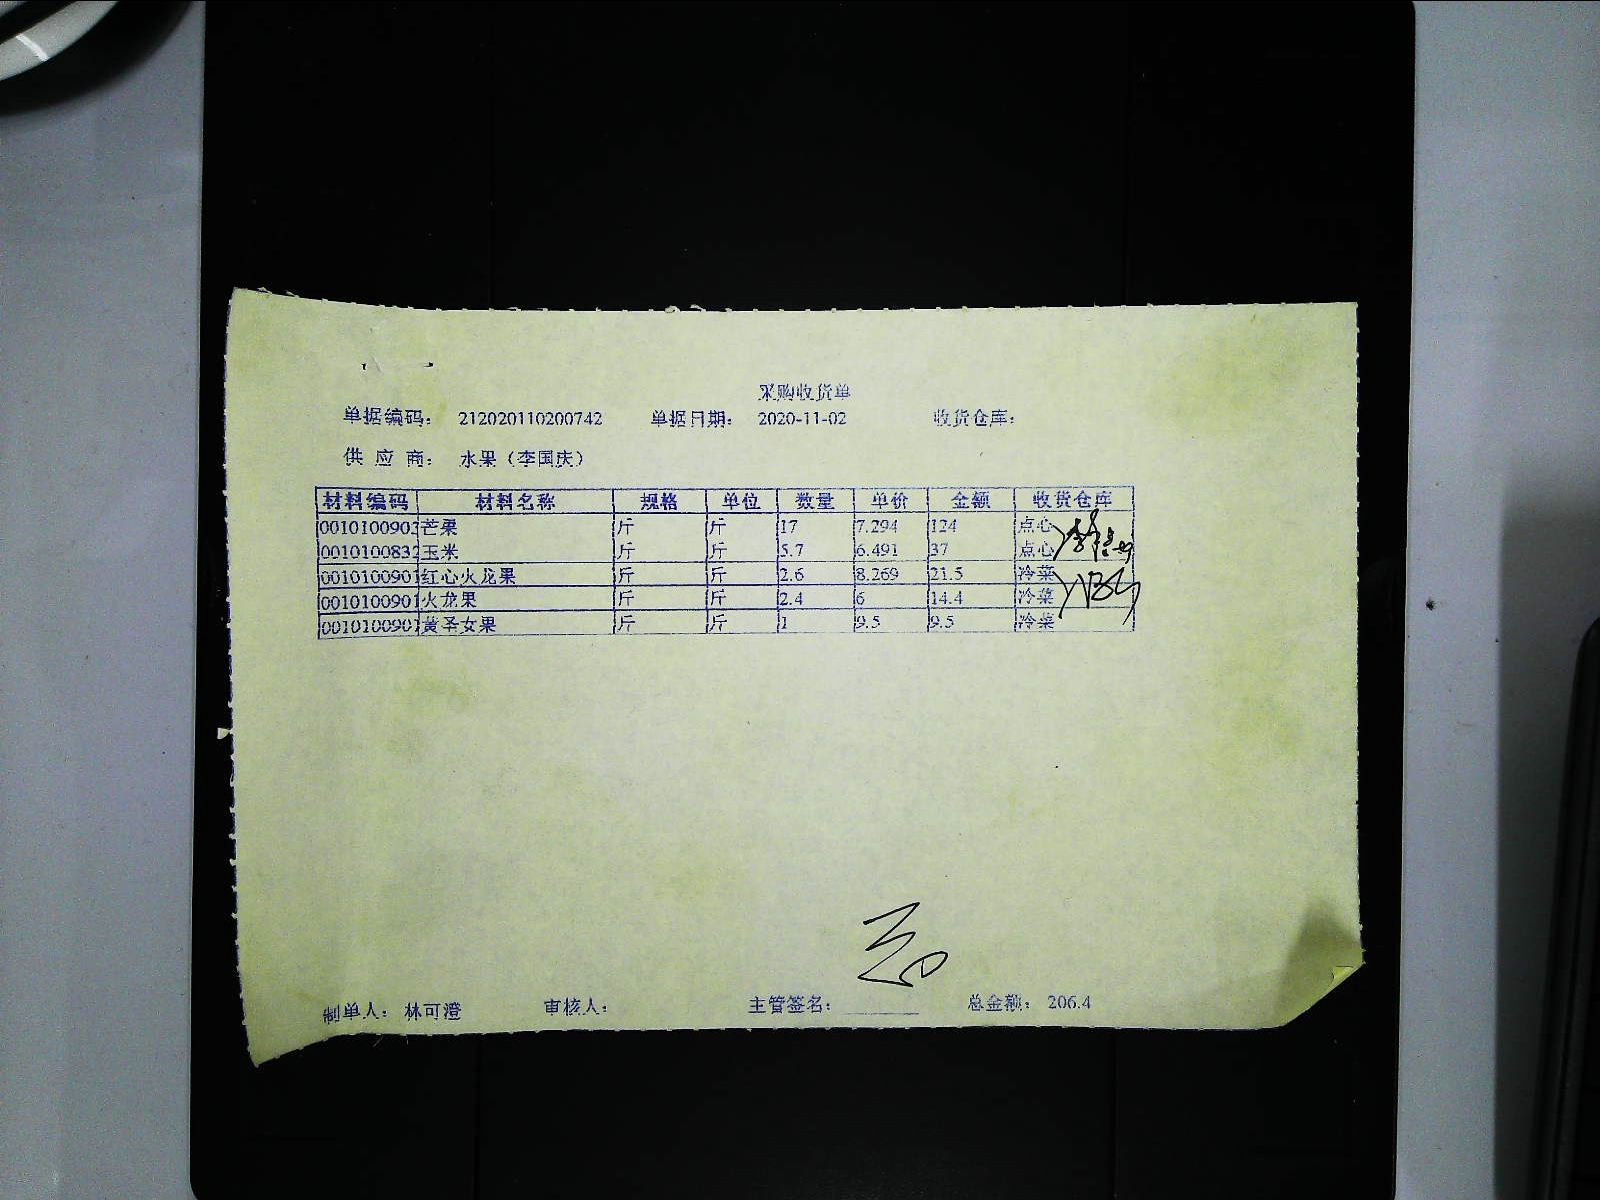 采购收货单
单据编码： 212020110200742 单据日期： 2020-11-02 收货仓库：
供 应 商： 水果（李国庆）
材料编码 材料名称 规格 单位 数量 单价 金额 收货仓库
0010100902 芒果 斤 斤 17 7.294 124 点心
0010100832 玉米 斤 斤 5.7 6.491 37 点心
0010100901 红心火龙果 斤 斤 2.6 8.269 21.5 冷菜
0010100901 火龙果 斤 斤 2.4 6 14.4 冷菜
0010100901 黄圣女果 斤 斤 1 9.5 9.5 冷菜
制单人： 林可澄 审核人： 主管签名： 总金额： 206.4